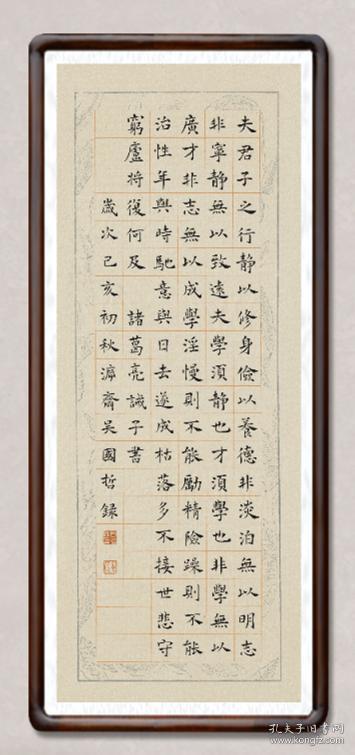 夫君子之行静以修身儉以養德非淡泊無以明志
非寧静無以致遠夫學須静也才須學也非學無以
廣才非志無以成學淫慢則不能勵精險躁則不能
治性年與時馳意與日去遂成枯落多不接世悲守
窮廬將復何及 諸葛亮誡子書
歲次己亥初秋濂齋吴國哲録
孔夫子旧书网
www.kongfz.com